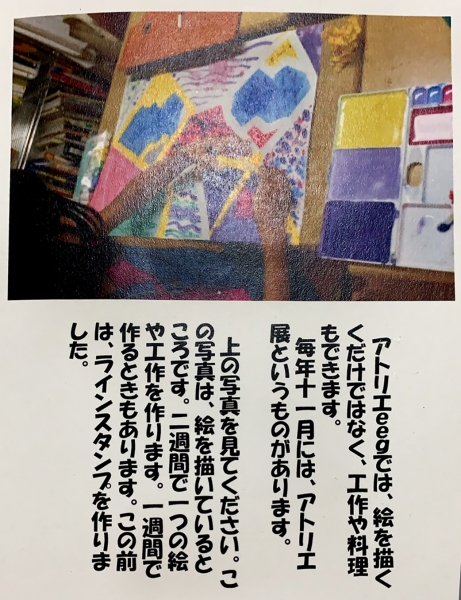 アトリエeggでは、絵を描く
くだけではなく、工作や料理
もできます。
毎年十一月には、アトリエ
展というものがあります。
上の写真を見てください。こ
の写真は、絵を描いていると
ころです。二週間で一つの絵
や工作を作ります。一週間で
作るときもあります。この前
は、ラインスタンプを作りま
した。